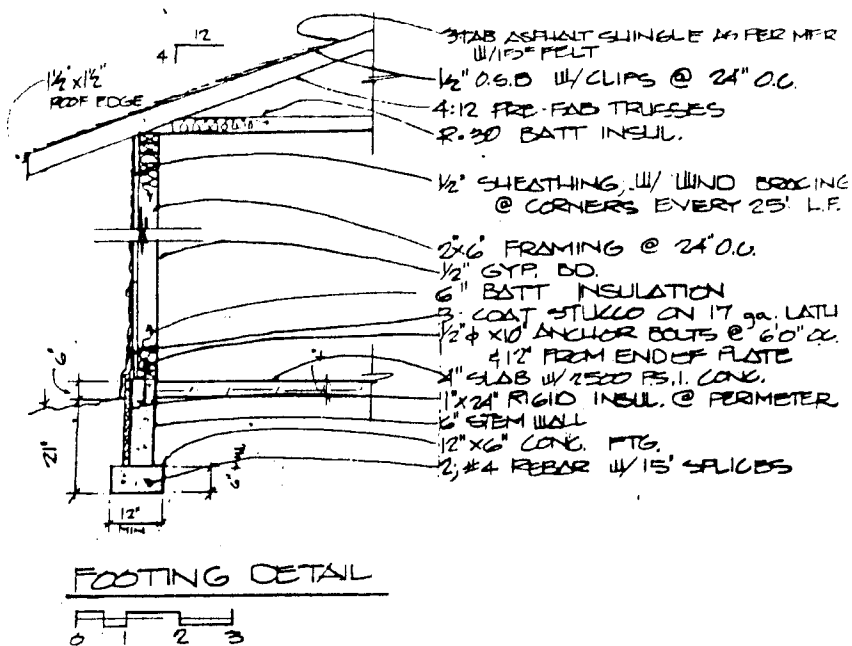 12
4
1½" x 1½"
ROOF EDGE
3 TAB ASPHALT SHINGLE AS PER MFR
W/15# FELT
½" O.S.B W/CLIPS @ 24" O.C.
4:12 PRE-FAB TRUSSES
R-30 BATT INSUL.
½" SHEATHING, W/ WIND BRACING
@ CORNERS EVERY 25' L.F.
2x6 FRAMING @ 24" O.C.
½" GYP. BD.
6" BATT INSULATION
3 COAT STUCCO ON 17 ga. LATH
½"φ x10" ANCHOR BOLTS @ 6'0" OC.
&12" FROM END OF PLATE
4" SLAB W/2500 P.S.I. CONC.
1"x24" RIGID INSUL. @ PERIMETER
6" STEM WALL
12"x6" CONC. FTG.
2, #4 REBAR W/15" SPLICES
6"
4"
21"
6" MIN
12"
MIN
FOOTING DETAIL
0 1 2 3